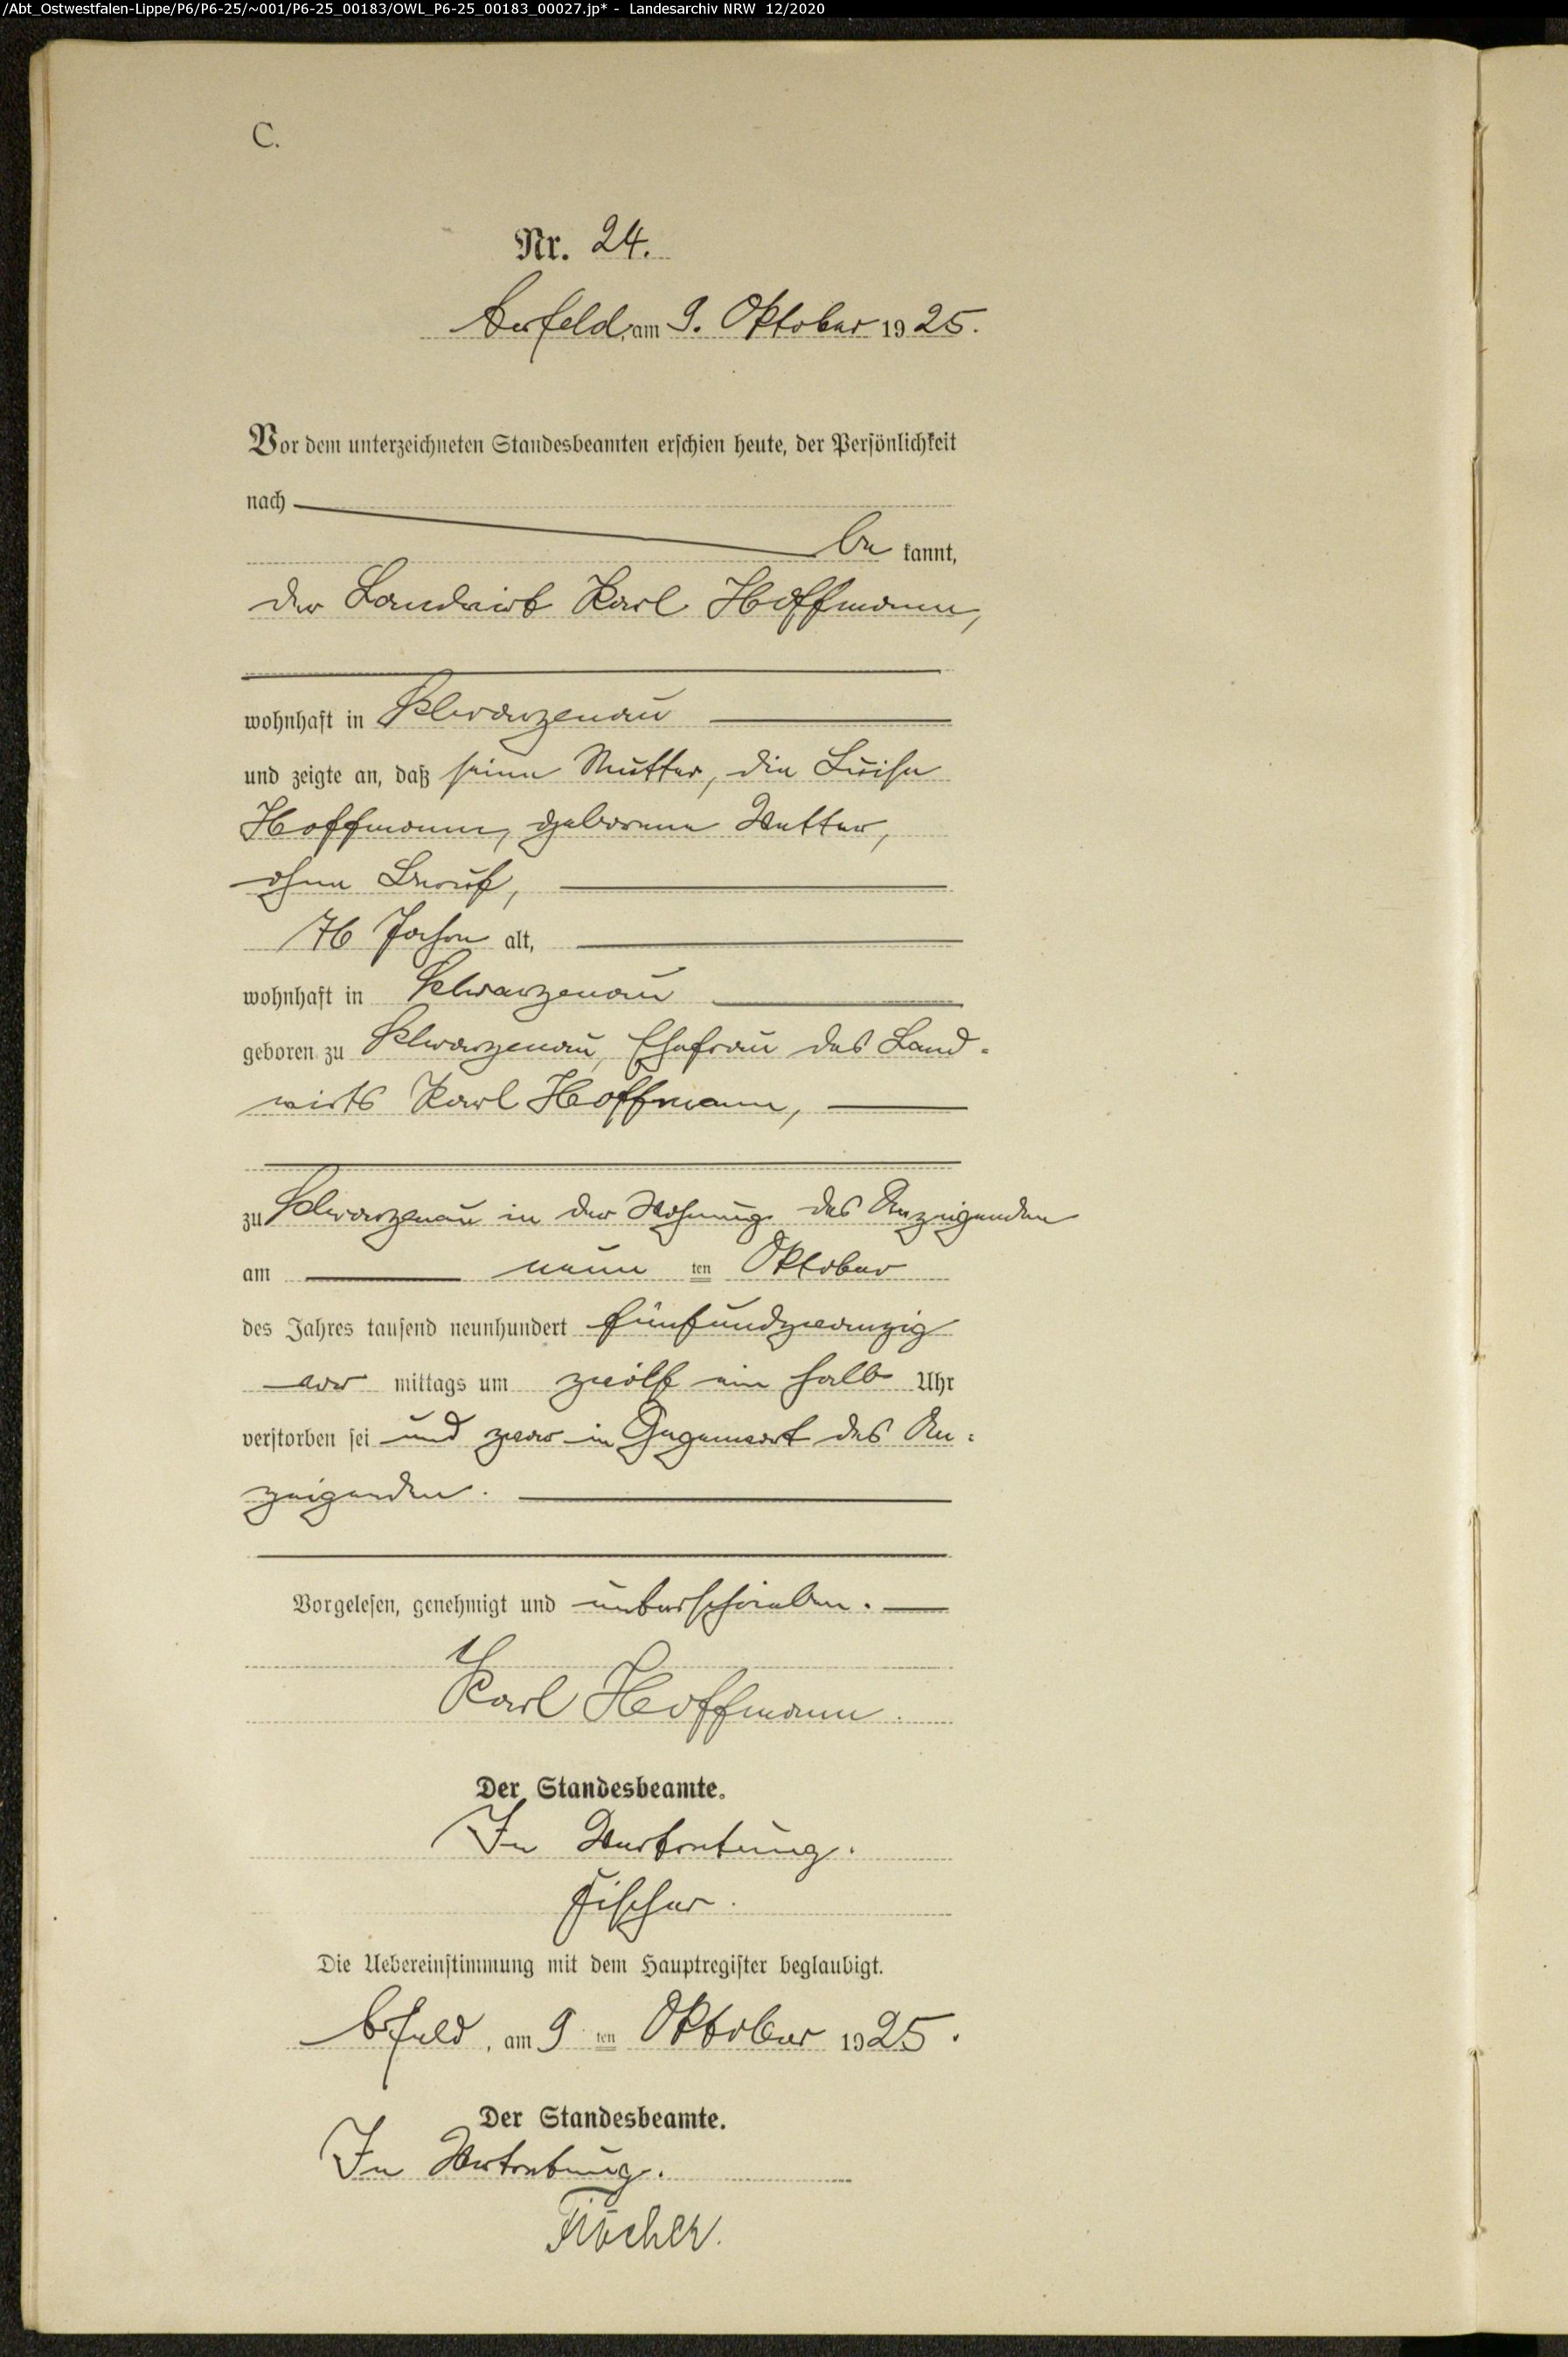 /Abt_Ostwestfalen-Lippe/P6/P6-25/~001/P6-25_00183/OWL_P6-25_00183_00027.jp* - Landesarchiv NRW 12/2020
C.
Nr. 24.
am 9. Oktober 1925.
Vor dem unterzeichneten Standesbeamten erschien heute, der Persönlichkeit
nach
be kannt,
der Landwirt Karl Hoffmann,
wohnhaft in Schwarzenau
und zeigte an, daß seine Mutter, die Luise
Hoffmann, geborene Vetter,
ohne Beruf,
76 Jahre alt,
wohnhaft in Schwarzenau
geboren zu Schwarzenau, Ehefrau des Land-
wirts Karl Hoffmann,
zu Schwarzenau in der Wohnung des Anzeigenden
am neun ten Oktober
des Jahres tausend neunhundert fünfundzwanzig
vor mittags um zwölf ein halb Uhr
verstorben sei und zwar in Gegenwart des An-
zeigenden.
Vorgelesen, genehmigt und unterschrieben.
Karl Hoffmann.
Der Standesbeamte.
In Vertretung.
Fischer.
Die Uebereinstimmung mit dem Hauptregister beglaubigt.
am 9 ten Oktober 1925.
Der Standesbeamte.
In Vertretung.
Fischer.